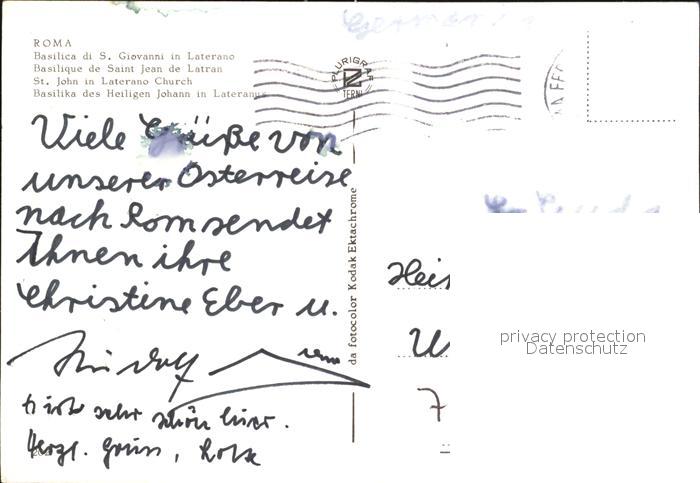 ROMA
Basilica di S. Giovanni in Laterano
Basilique de Saint Jean de Latran
St. John in Laterano Church
Basilika des Heiligen Johann in Lateranus
PLURIGRAF
TERNI
da fotocolor Kodak Ektachrome
Viele Grüße von
unserer Osterreise
nach Rom sendet
Ihnen ihre
Christine Eber u.
sehr schön hier.
Herzl. Gruss,
Germania
Heis
U
7
privacy protection
Datenschutz